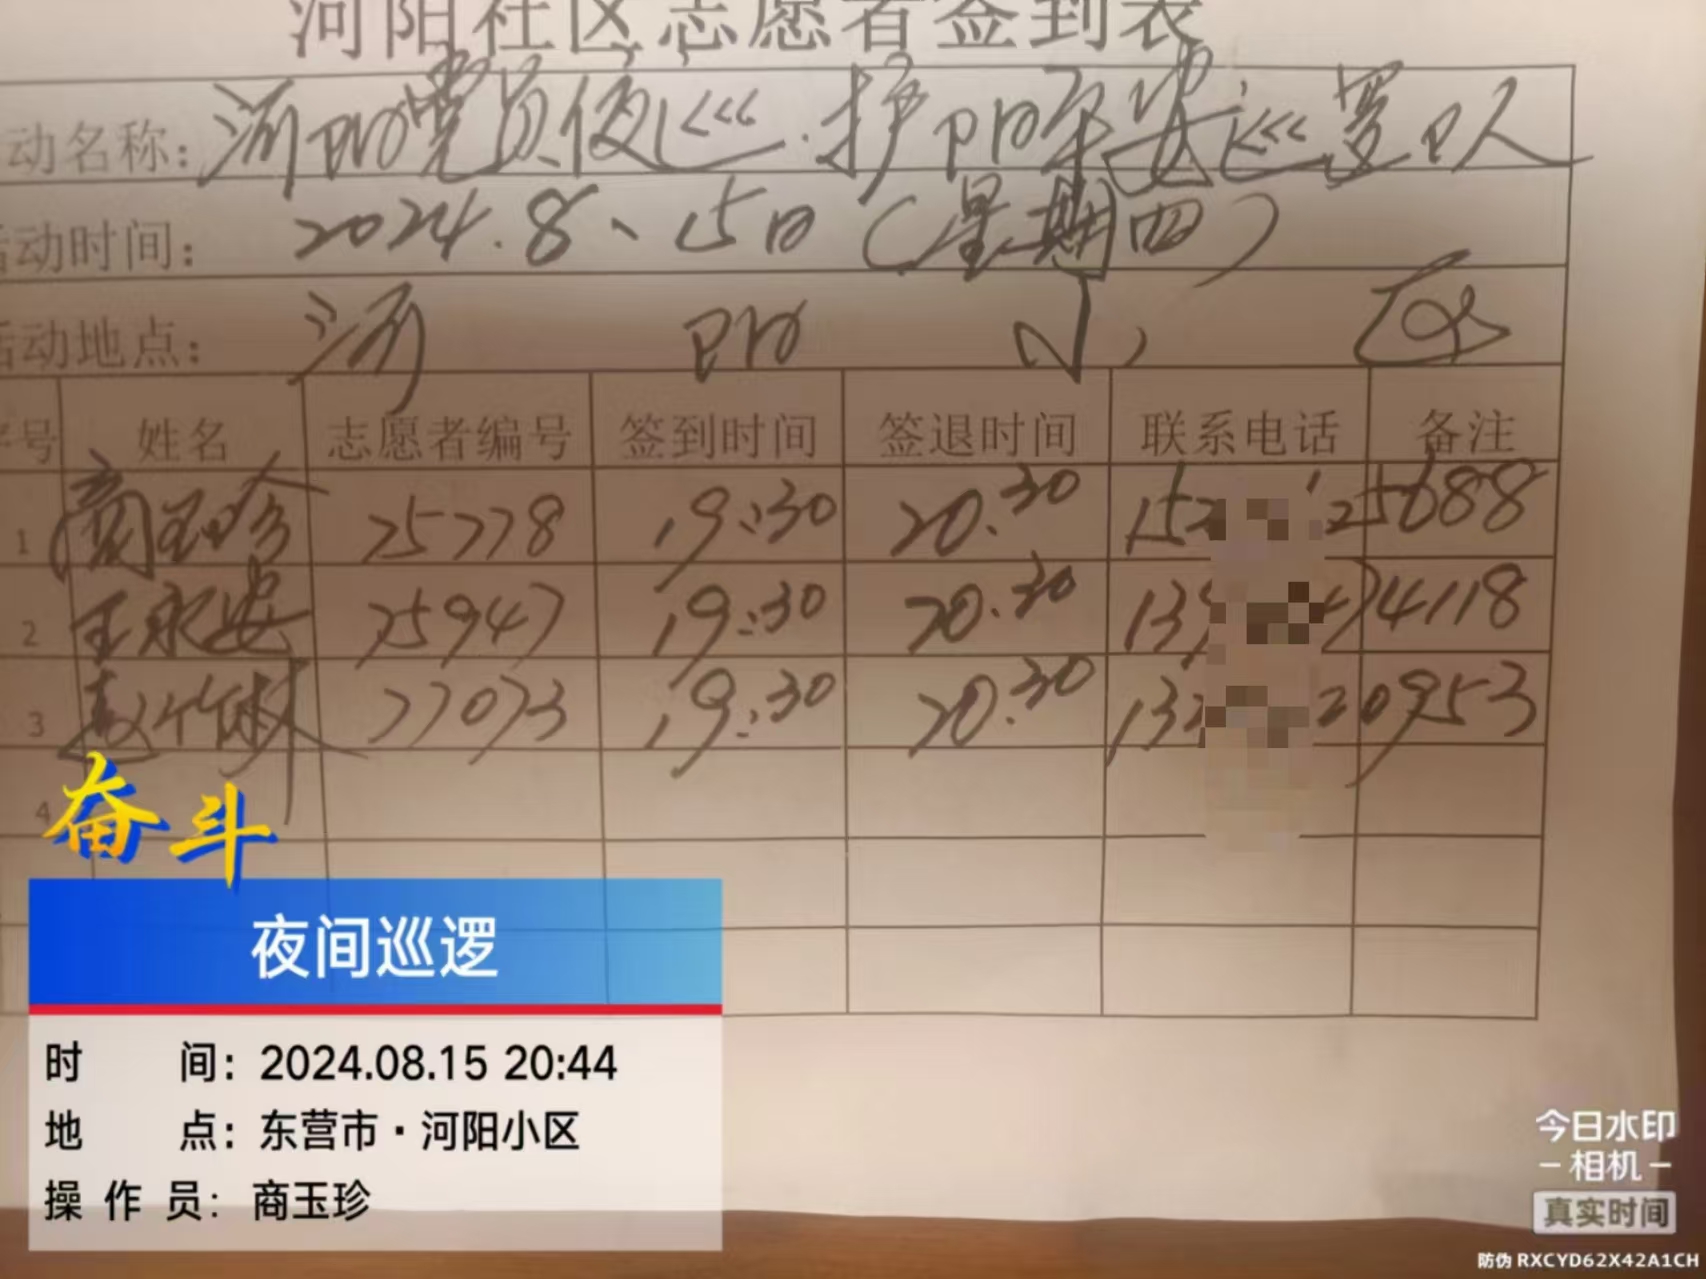 河阳社区志愿者签到表
动名称：河阳党员夜巡.护阳平安巡逻队
活动时间：2024.8、15日（星期四）
活动地点：河 阳 小 区
序号 姓名 志愿者编号 签到时间 签退时间 联系电话 备注
1 商玉珍 25778 19:30 20.30 152 25688
2 王永安 25947 19:30 20.30 139 74118
3 赵竹林 27073 19:30 20.30 132 20953
4
奋斗
夜间巡逻
时 间：2024.08.15 20:44
地 点：东营市·河阳小区
操 作 员：商玉珍
今日水印
-相机-
真实时间
防伪 RXCYD62X42A1CH